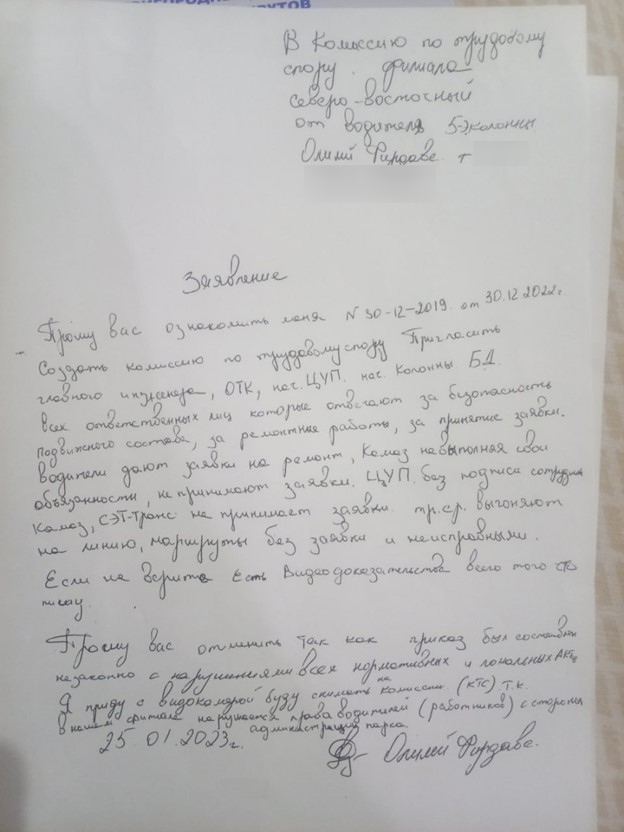 РУТОВ
В Комиссию по трудовому
спору. филиала
северо-восточный
от водителя 5-Эколонны
Олилй Фирдавс. т
Заявление
Прошу вас ознакомить меня N 30-12-2019. от 30.12.2022г.
Создать комиссию по трудовому спору Пригласить
главного инженера, ОТК, нач. ЦУП. нач. Колонны Б.Д.
всех ответственных лиц которые отвечают за безопасность
подвижного состава, за ремонтные работы, за принятие заявки.
водители дают заявки на ремонт, Камаз невыполная свои
объязанности, не принимают заявки. ЦУП. без подписа сотрудник
Камаз, СЭТ-Транс не принимает заявки. тр.ср. выгоняют
на линию, маршруты без заявки и неисправными.
Если не верите Есть Видеодоказательства всего того что
пишу.
Прошу вас отменить так как приказ был составлен
незаконно с нарушениями всех нормативных и локальных Актц
Я приду с видокамерой буду снимать на комиссии (КТС) т.к.
в нашем филиале нарушается права водителей (работников) с стороны
администраций парка.
25 01.2023г. Олилй Фирдавс.